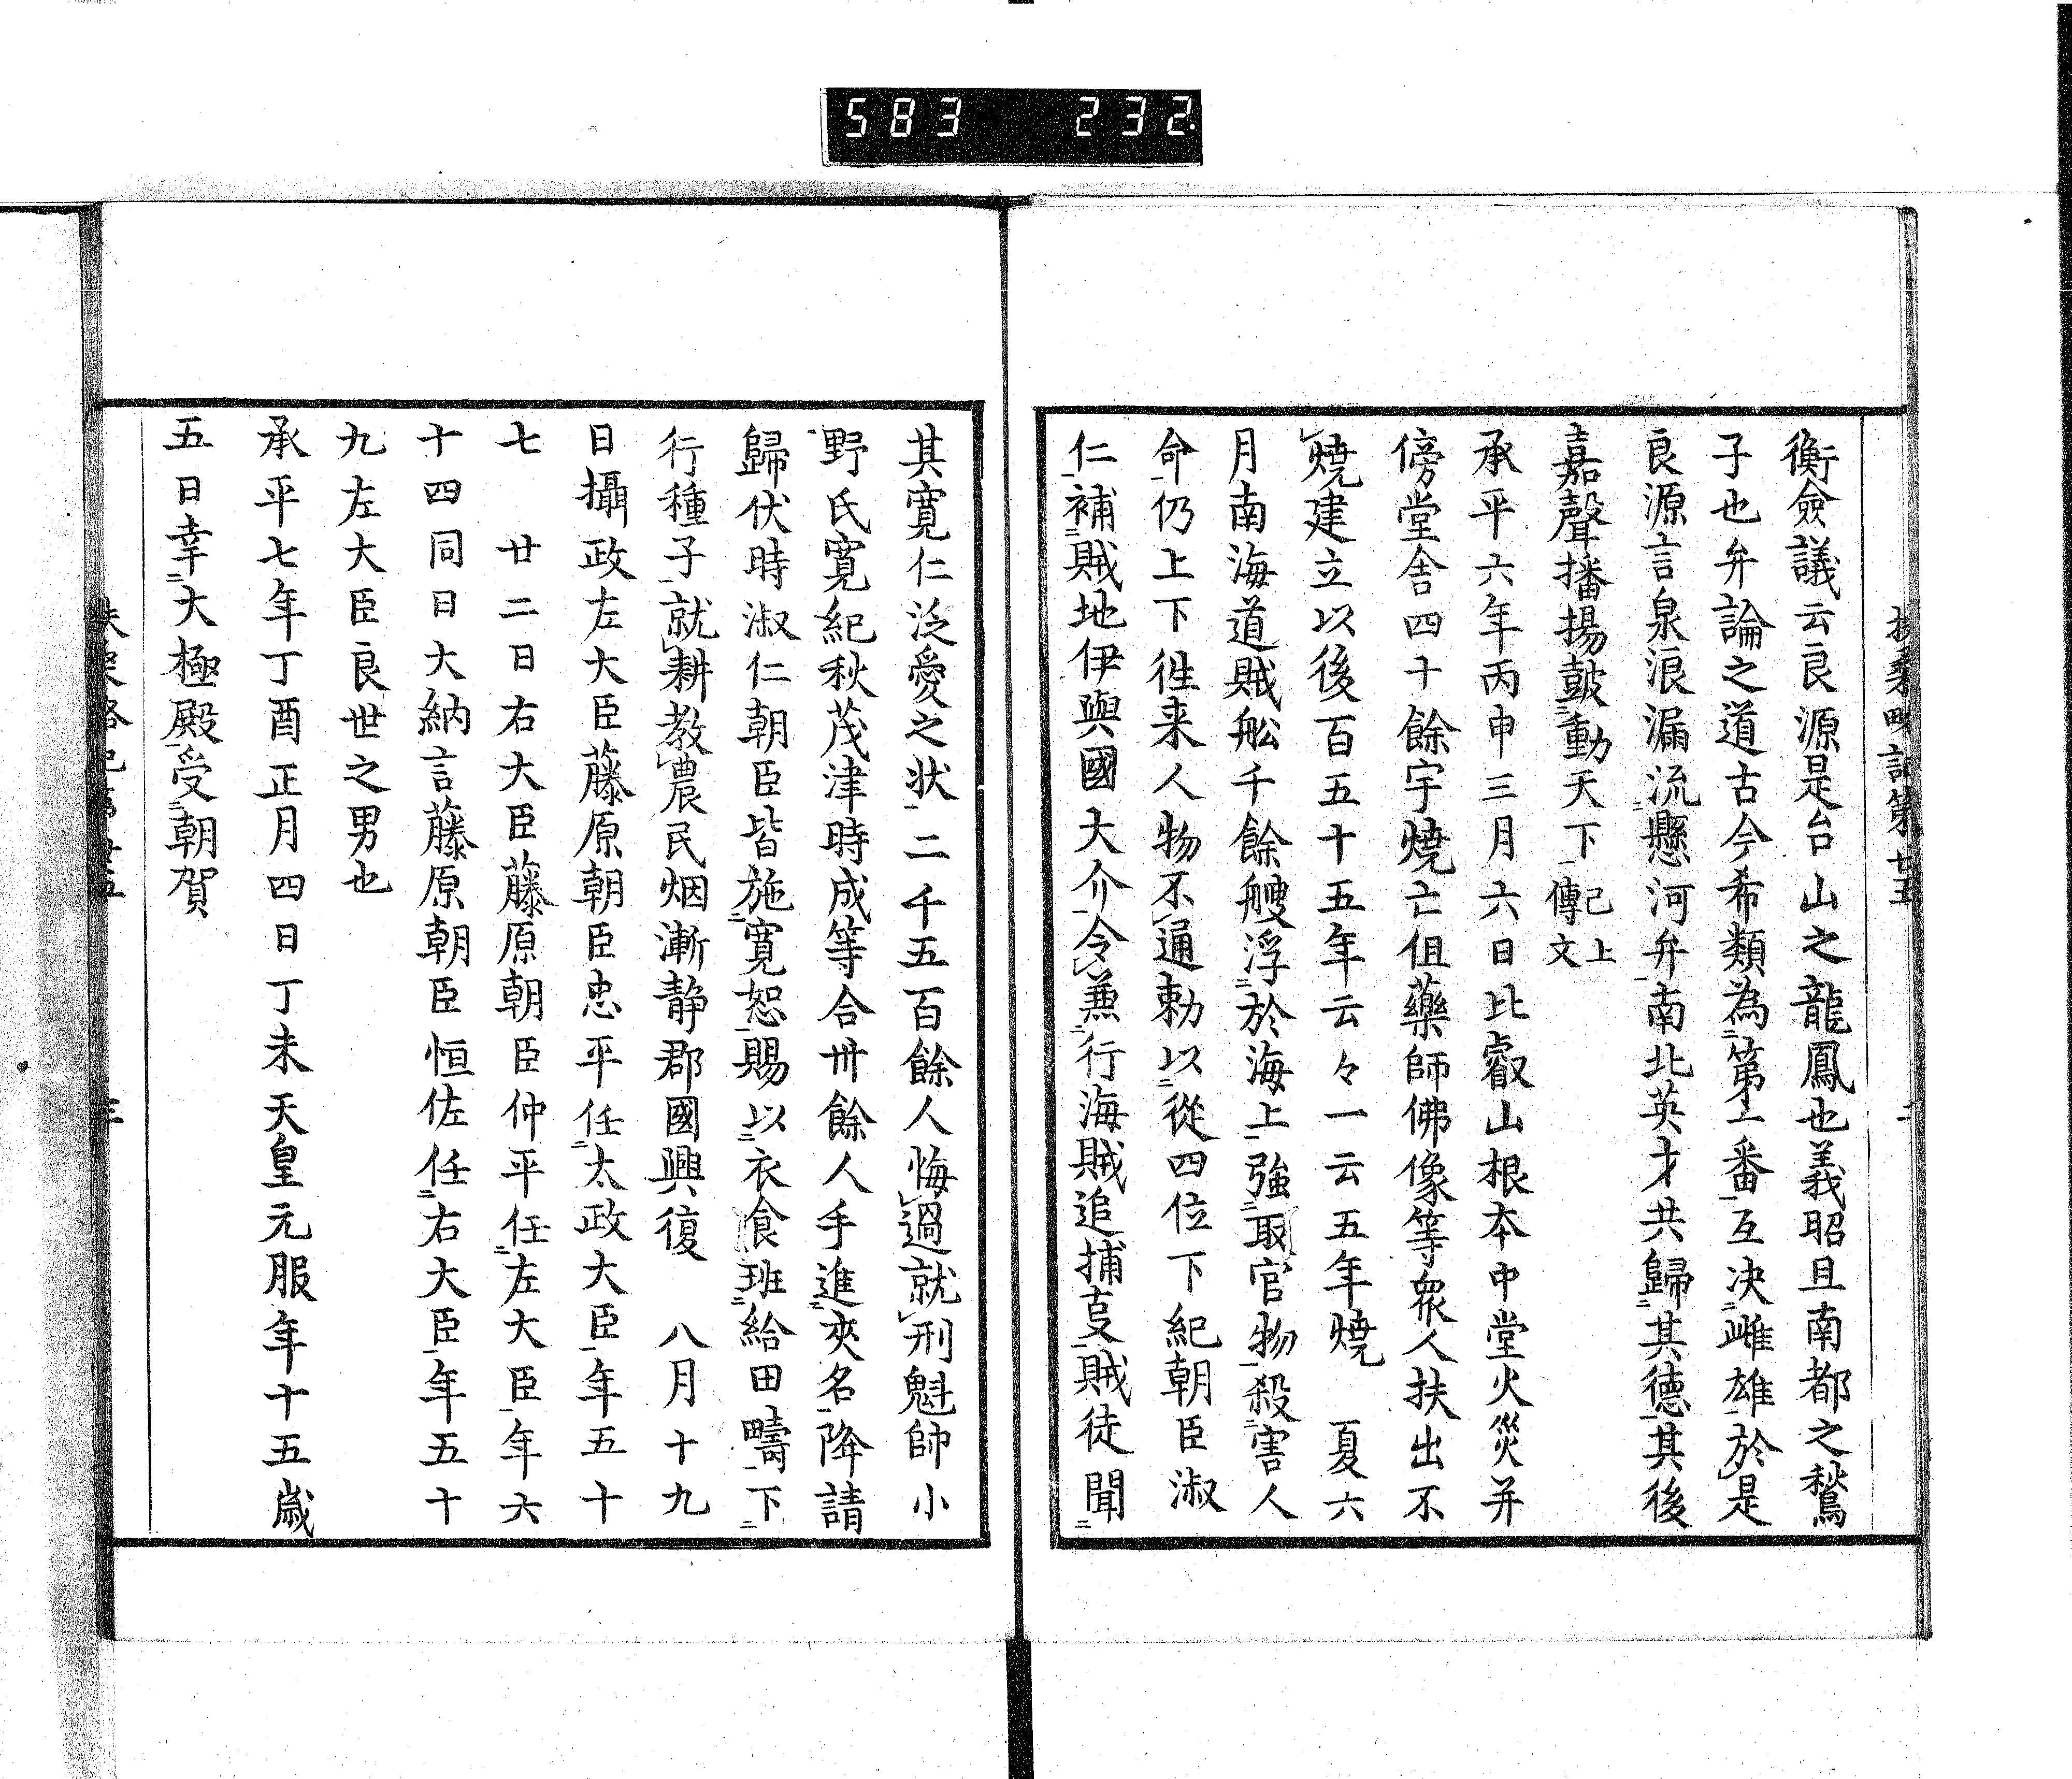 583 232.
衡僉議云良源是台山之龍鳳也義昭且南都之鶖
子也弁論之道古今希類為第一番互决雌雄於是
良源言泉浪漏流懸河弁南北英才共歸其德其後
嘉聲播揚鼓動天下已上傳文
承平六年丙申三月六日比叡山根本中堂火災并
傍堂舎四十餘宇燒亡但藥師佛像等衆人扶出不
燒建立以後百五十五年云々一云五年燒 夏六
月南海道賊舩千餘艘浮於海上強取官物殺害人
命仍上下徃来人物不通勅以從四位下紀朝臣淑
仁補賊地伊與國大介令兼行海賊追捕叓賊徒聞
其寛仁泛愛之状二千五百餘人悔過就刑魁帥小
野氏寛紀秋茂津時成等合卅餘人手進夾名降請
歸伏時淑仁朝臣皆施寛恕賜以衣食班給田疇下
行種子就耕教農民烟漸静郡國興復 八月十九
日攝政左大臣藤原朝臣忠平任太政大臣年五十
七 廿二日右大臣藤原朝臣仲平任左大臣年六
十四同日大納言藤原朝臣恒佐任右大臣年五十
九左大臣良世之男也
承平七年丁酉正月四日丁未天皇元服年十五歳
五日幸大極殿受朝賀